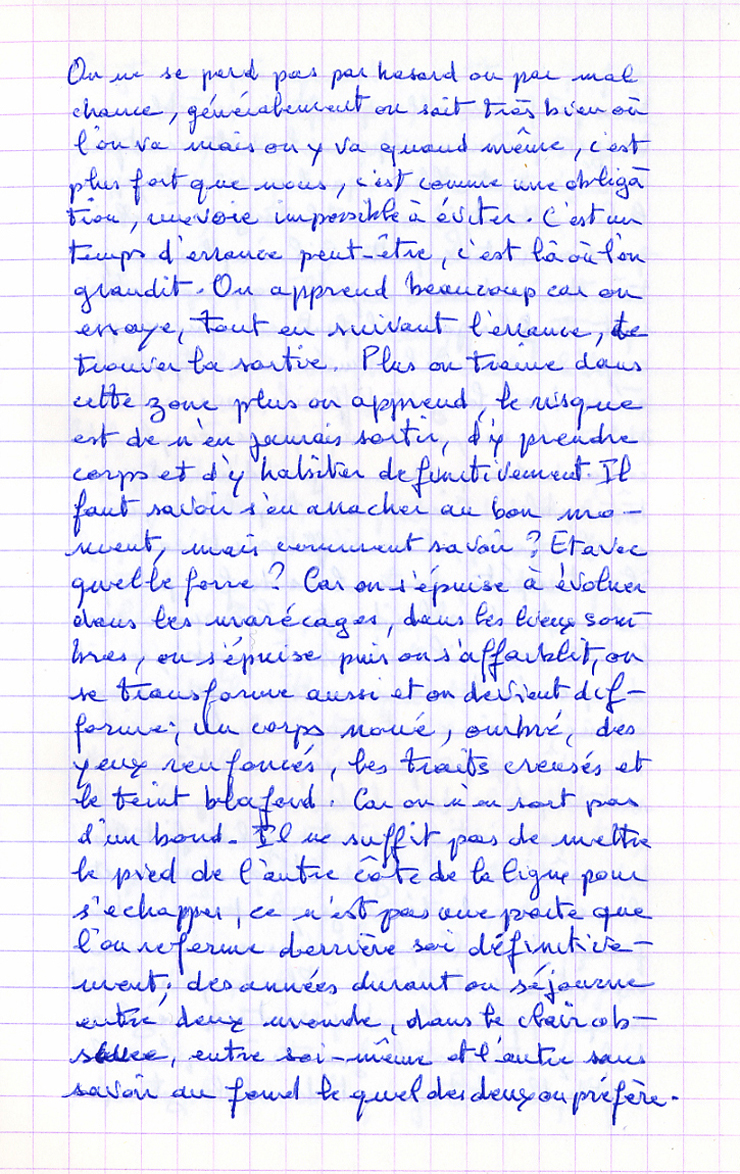 On ne se perd pas par hasard ou par mal
chance, généralement on sait très bien où
l'on va mais on y va quand même, c'est
plus fort que nous, c'est comme une obliga
tion, une voie impossible à éviter. C'est un
temps d'errance peut-être, c'est là où l'on
grandit. On apprend beaucoup car on
essaye, tout en suivant l'errance, de
trouver la sortie. Plus on traine dans
cette zone plus on apprend, le risque
est de n'en jamais sortir, d'y prendre
corps et d'y habiter definitivement. Il
faut savoir s'en arracher au bon mo-
ment, mais comment savoir ? Et avec
quelle force ? Car on s'épuise à évoluer
dans les marécages, dans les lieux som
bres, on s'épuise puis on s'affaiblit, on
se transforme aussi et on devient dif-
forme; un corps noué, ombré, des
yeux renfoncés, les traits creusés et
le teint blafard. Car on n'en sort pas
d'un bond. Il ne suffit pas de mettre
le pied de l'autre côté de la ligne pour
s'echapper, ce n'est pas une porte que
l'on referme derrière soi définitive-
ment; des années durant on séjourne
entre deux monde, dans le clair ob-
entre soi-même et l'autre sans
savoir au fond le quel des deux on préfère.